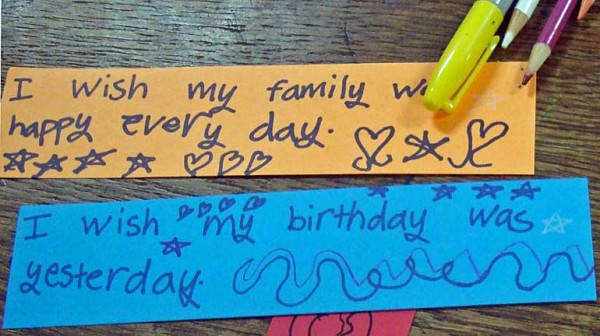 I wish my family
happy every day.
I wish my birthday was
yesterday.